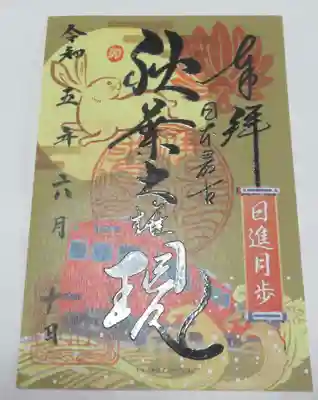 奉拝
日本最古
秋葉大権現
日進月歩
令和五年六月十日
卯